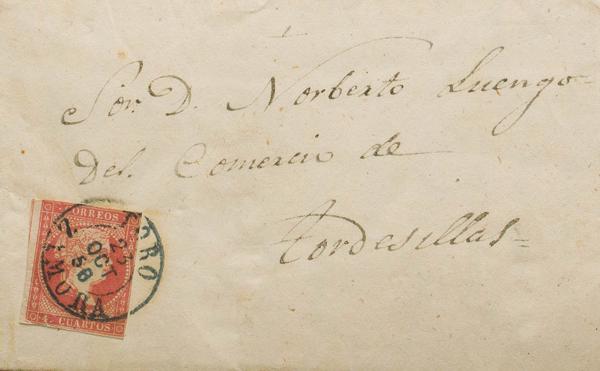 Sor. D. Norberto Luengo
Del Comercio de
Tordesillas=
CORREOS
4 CUARTOS
TORO
23
OCT
58
ZAMORA